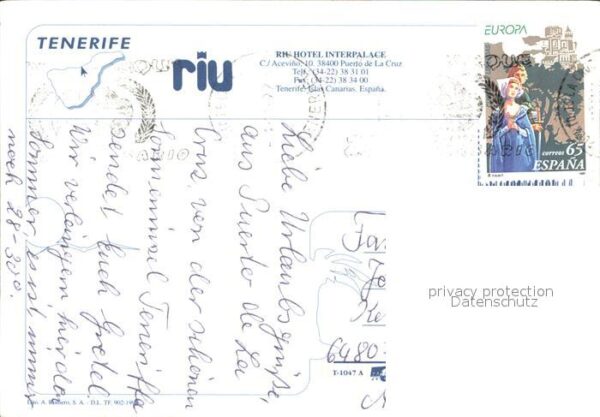 TENERIFE
riu
RIU HOTEL INTERPALACE
C./ Aceviño, 10. 38400 Puerto de La Cruz.
Telf. (34-22) 38 31 01
Fax. (34-22) 38 34 00
Tenerife. Islas Canarias. España.
EUROPA
correos 65
ESPAÑA
Liebe Urlaubsgrüße,
aus Puerto de La
Crus, von der schönen
Sonneninsel Teneriffa
sendet Euch Gretel.
Wir verlängern hier den
Sommer, es ist immer
noch 28-30°.
6480
T-1047 A
privacy protection
Datenschutz